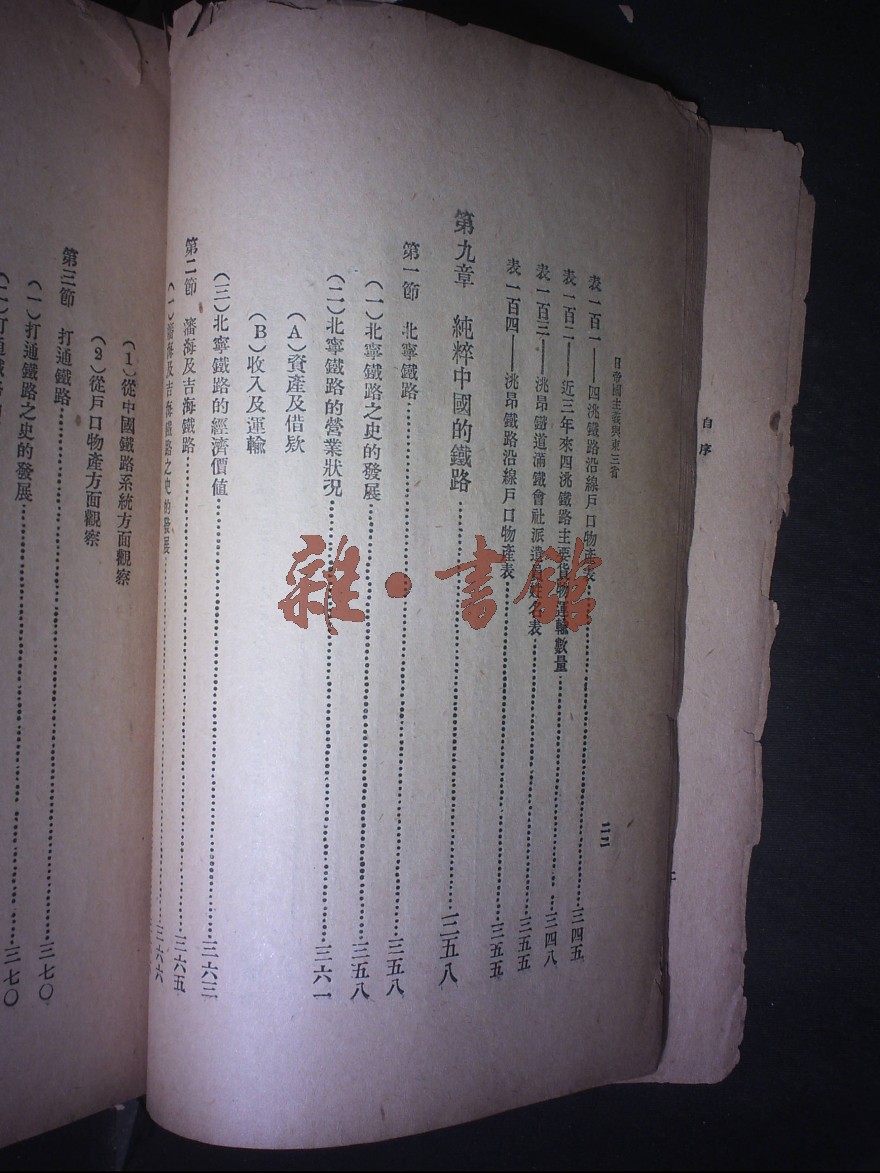 自序
日帝國主義與東三省
二二
表一百一——四洮鐵路沿線戶口物產表……三四五
表一百二——近三年來四洮鐵路主要貨物運輸數量……三四八
表一百三——洮昂鐵道滿鐵會社派遣員姓名表……三五五
表一百四——洮昂鐵路沿線戶口物產表……三五五
第九章 純粹中國的鐵路……三五八
第一節 北寧鐵路……三五八
(一)北寧鐵路之史的發展……三五八
(二)北寧鐵路的營業狀況……三六一
(A)資產及借欵
(B)收入及運輸
(三)北寧鐵路的經濟價值……三六三
第二節 瀋海及吉海鐵路……三六五
(一)瀋海及吉海鐵路之史的發展……三六六
(1)從中國鐵路系統方面觀察
(2)從戶口物產方面觀察
第三節 打通鐵路……三七〇
(一)打通鐵路之史的發展……三七〇
雜·書館